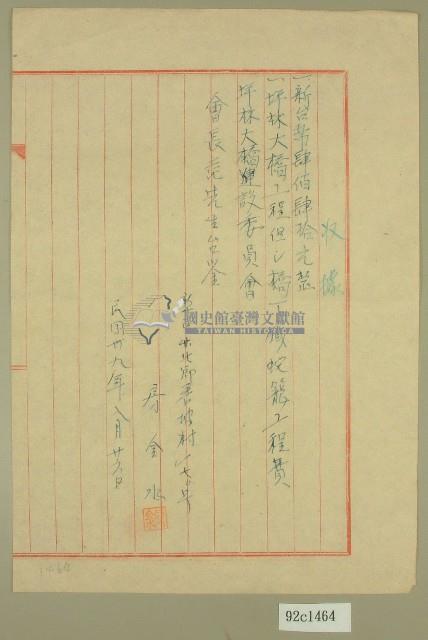 收據
一新台幣肆佰肆拾元整
一坪林大橋工程
橋下
蛇籠工程費
坪林大橋建設委員會
會長
先生台鑒
坡村
號
房金水
民國卅九年八月廿六日
國史館臺灣文獻館
TAIWAN HISTORICA
1464
92c1464